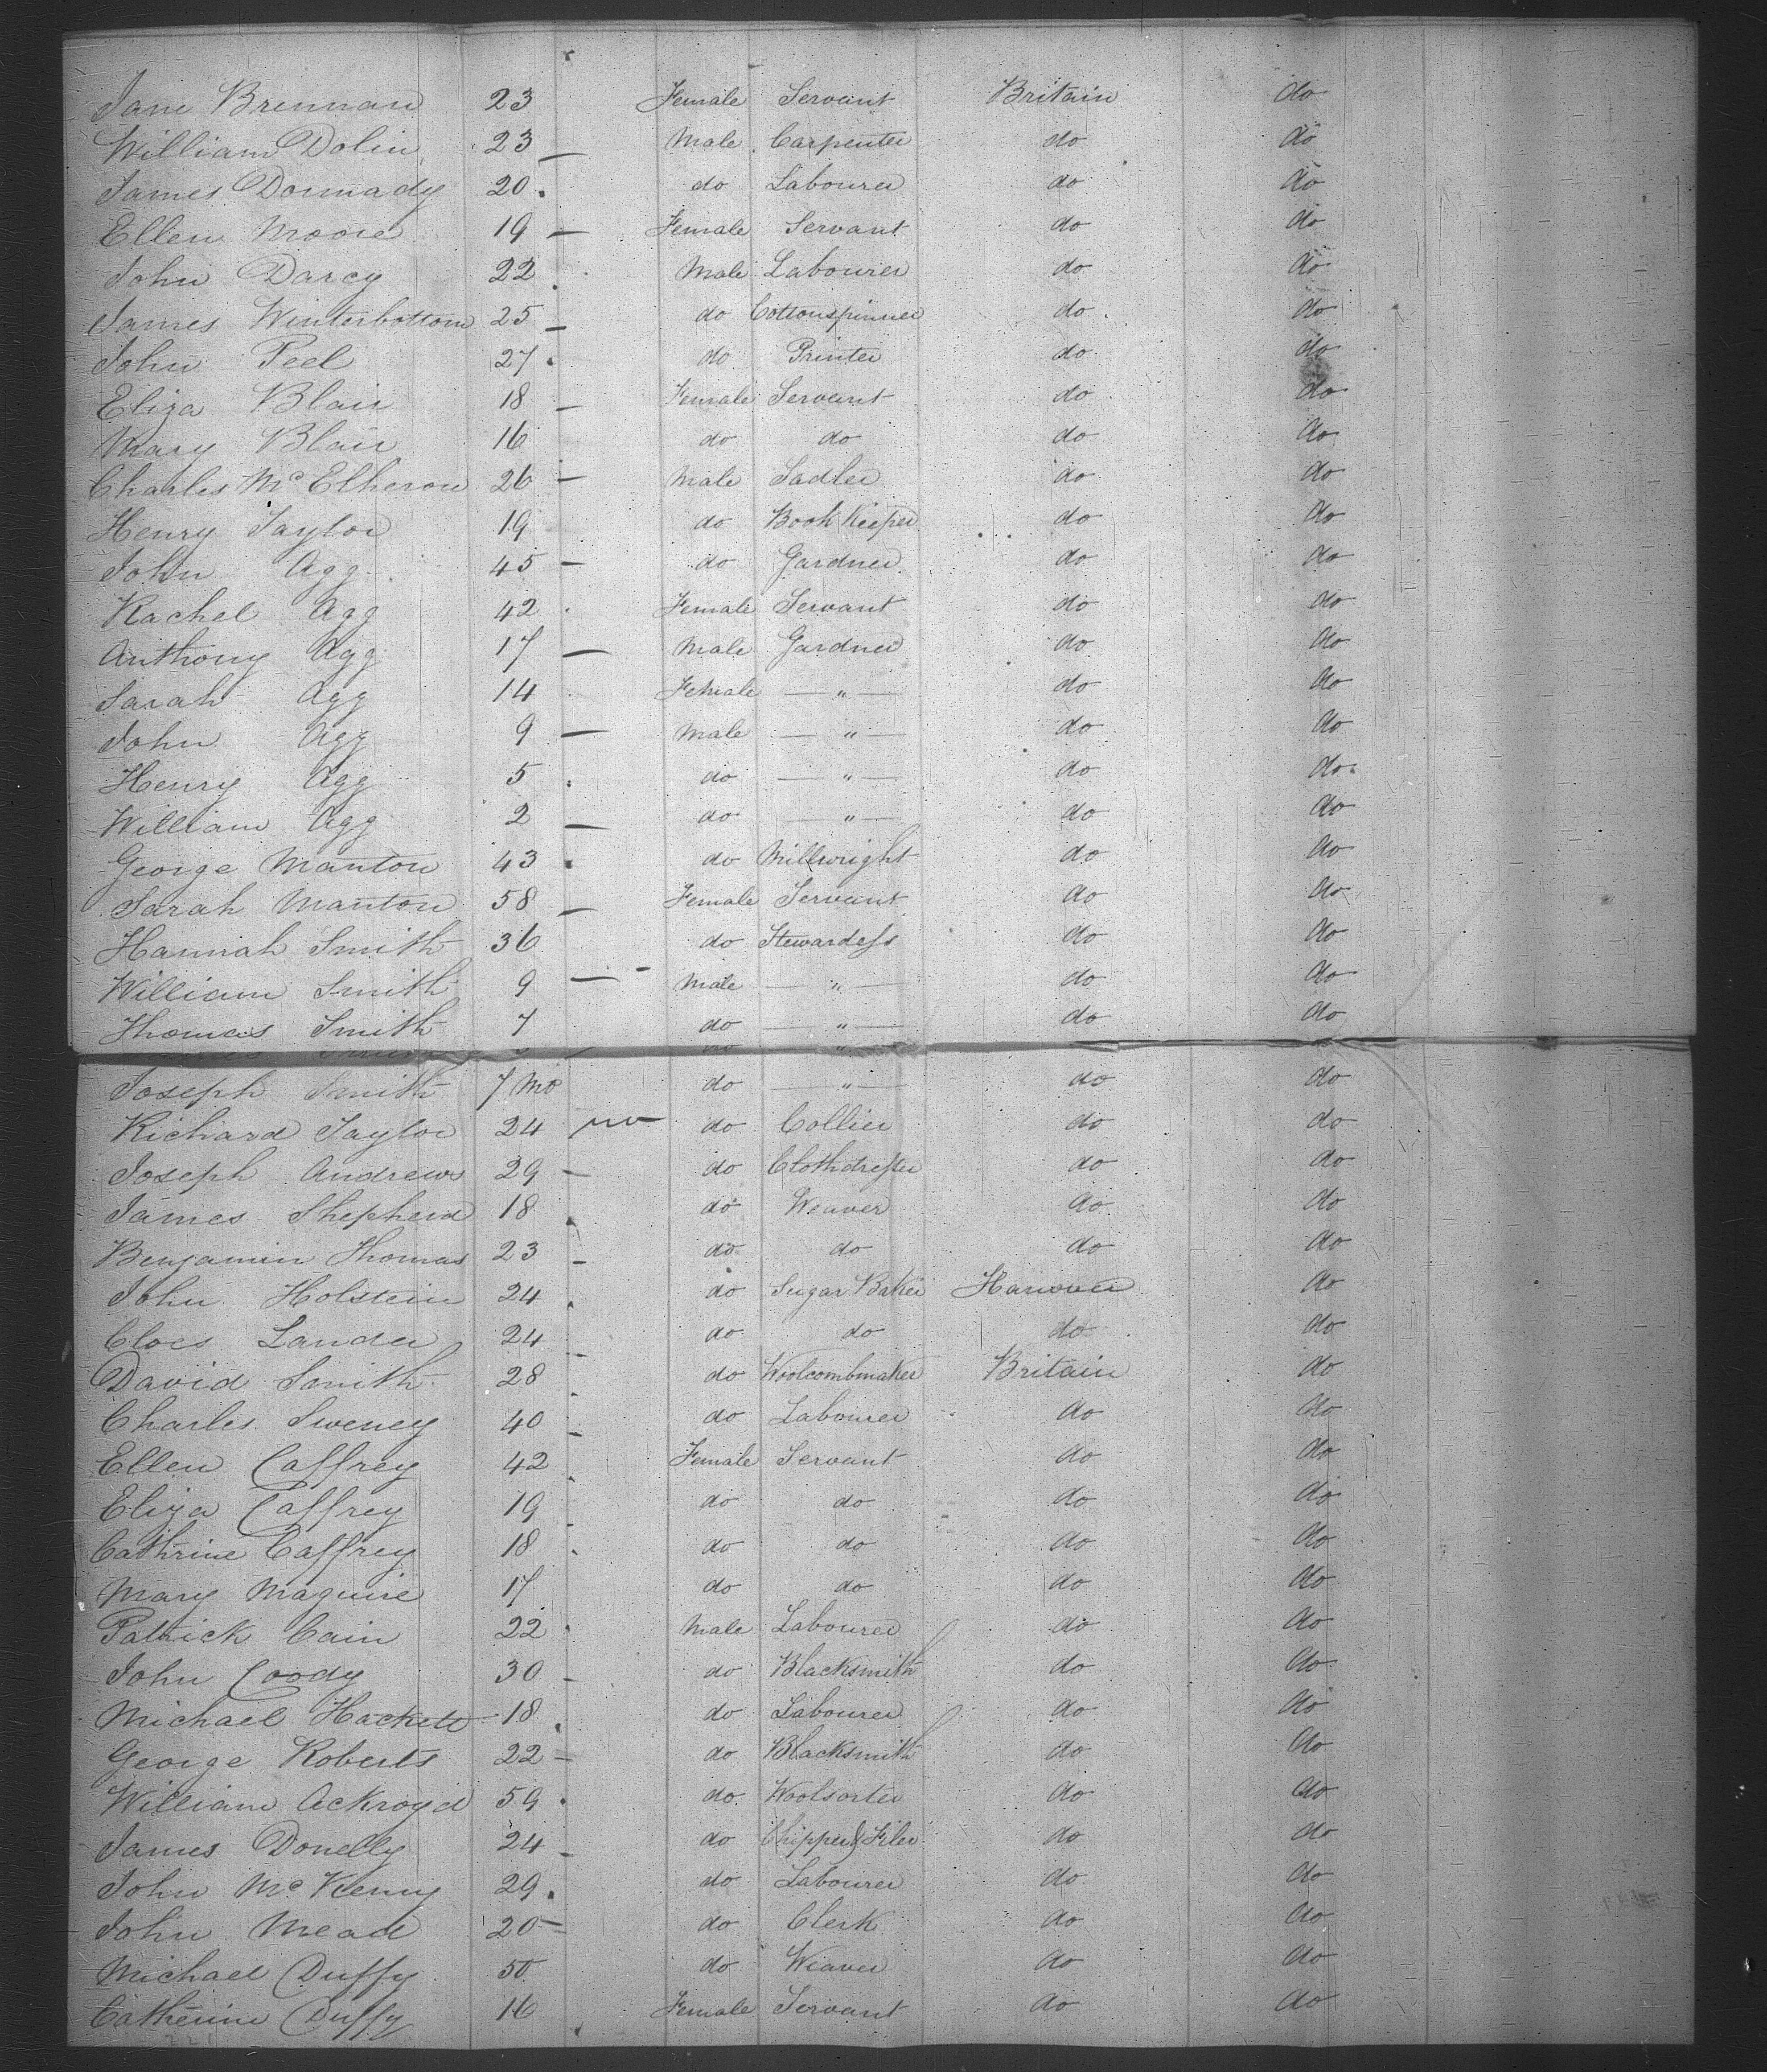 Jane Brennan 23 Female Servant Britain do
William Dolin 23 Male Carpenter do do
James Dormady 20 do Labourer do do
Ellen Moore 19 Female Servant do do
John Darcy 22 Male Labourer do do
James Winterbottom 25 do Cottonspinner do do
John Peel 27 do Printer do do
Eliza Blair 18 Female Servant do do
Mary Blair 16 do do do do
Charles McElheron 26 Male Sadler do do
Henry Taylor 19 do Book Keeper do do
John Agg 45 do Gardner do do
Rachel Agg 42 Female Servant do do
Anthony Agg 17 Male Gardner do do
Sarah Agg 14 Female — " — do do
John Agg 9 Male — " — do do
Henry Agg 5 do — " — do do
William Agg 2 do — " — do do
George Manton 43 do Millwright do do
Sarah Manton 58 Female Servant do do
Hannah Smith 36 do Stewardess do do
William Smith 9 Male — " — do do
Thomas Smith 7 do — " — do do
Joseph Smith 7 Mo do — " — do do
Richard Taylor 24 do Collier do do
Joseph Andrews 29 do Clothdresser do do
James Shepherd 18 do Weaver do do
Benjamin Thomas 23 do do do do
John Holstein 24 do Sugar Baker Hanover do
Cloes Lander 24 do do do do
David Smith 28 do Woolcombmaker Britain do
Charles Sweney 40 do Labourer do do
Ellen Caffrey 42 Female Servant do do
Eliza Caffrey 19 do do do do
Cathrine Caffrey 18 do do do do
Mary Maguire 17 do do do do
Patrick Cain 22 Male Labourer do do
John Coody 30 do Blacksmith do do
Michael Hackett 18 do Labourer do do
George Roberts 22 do Blacksmith do do
William Ackroyd 59 do Woolsorter do do
James Donelly 24 do Chipper & Filer do do
John McKenny 29 do Labourer do do
John Mead 20 do Clerk do do
Michael Duffy 50 do Weaver do do
Catherine Duffy 16 Female Servant do do